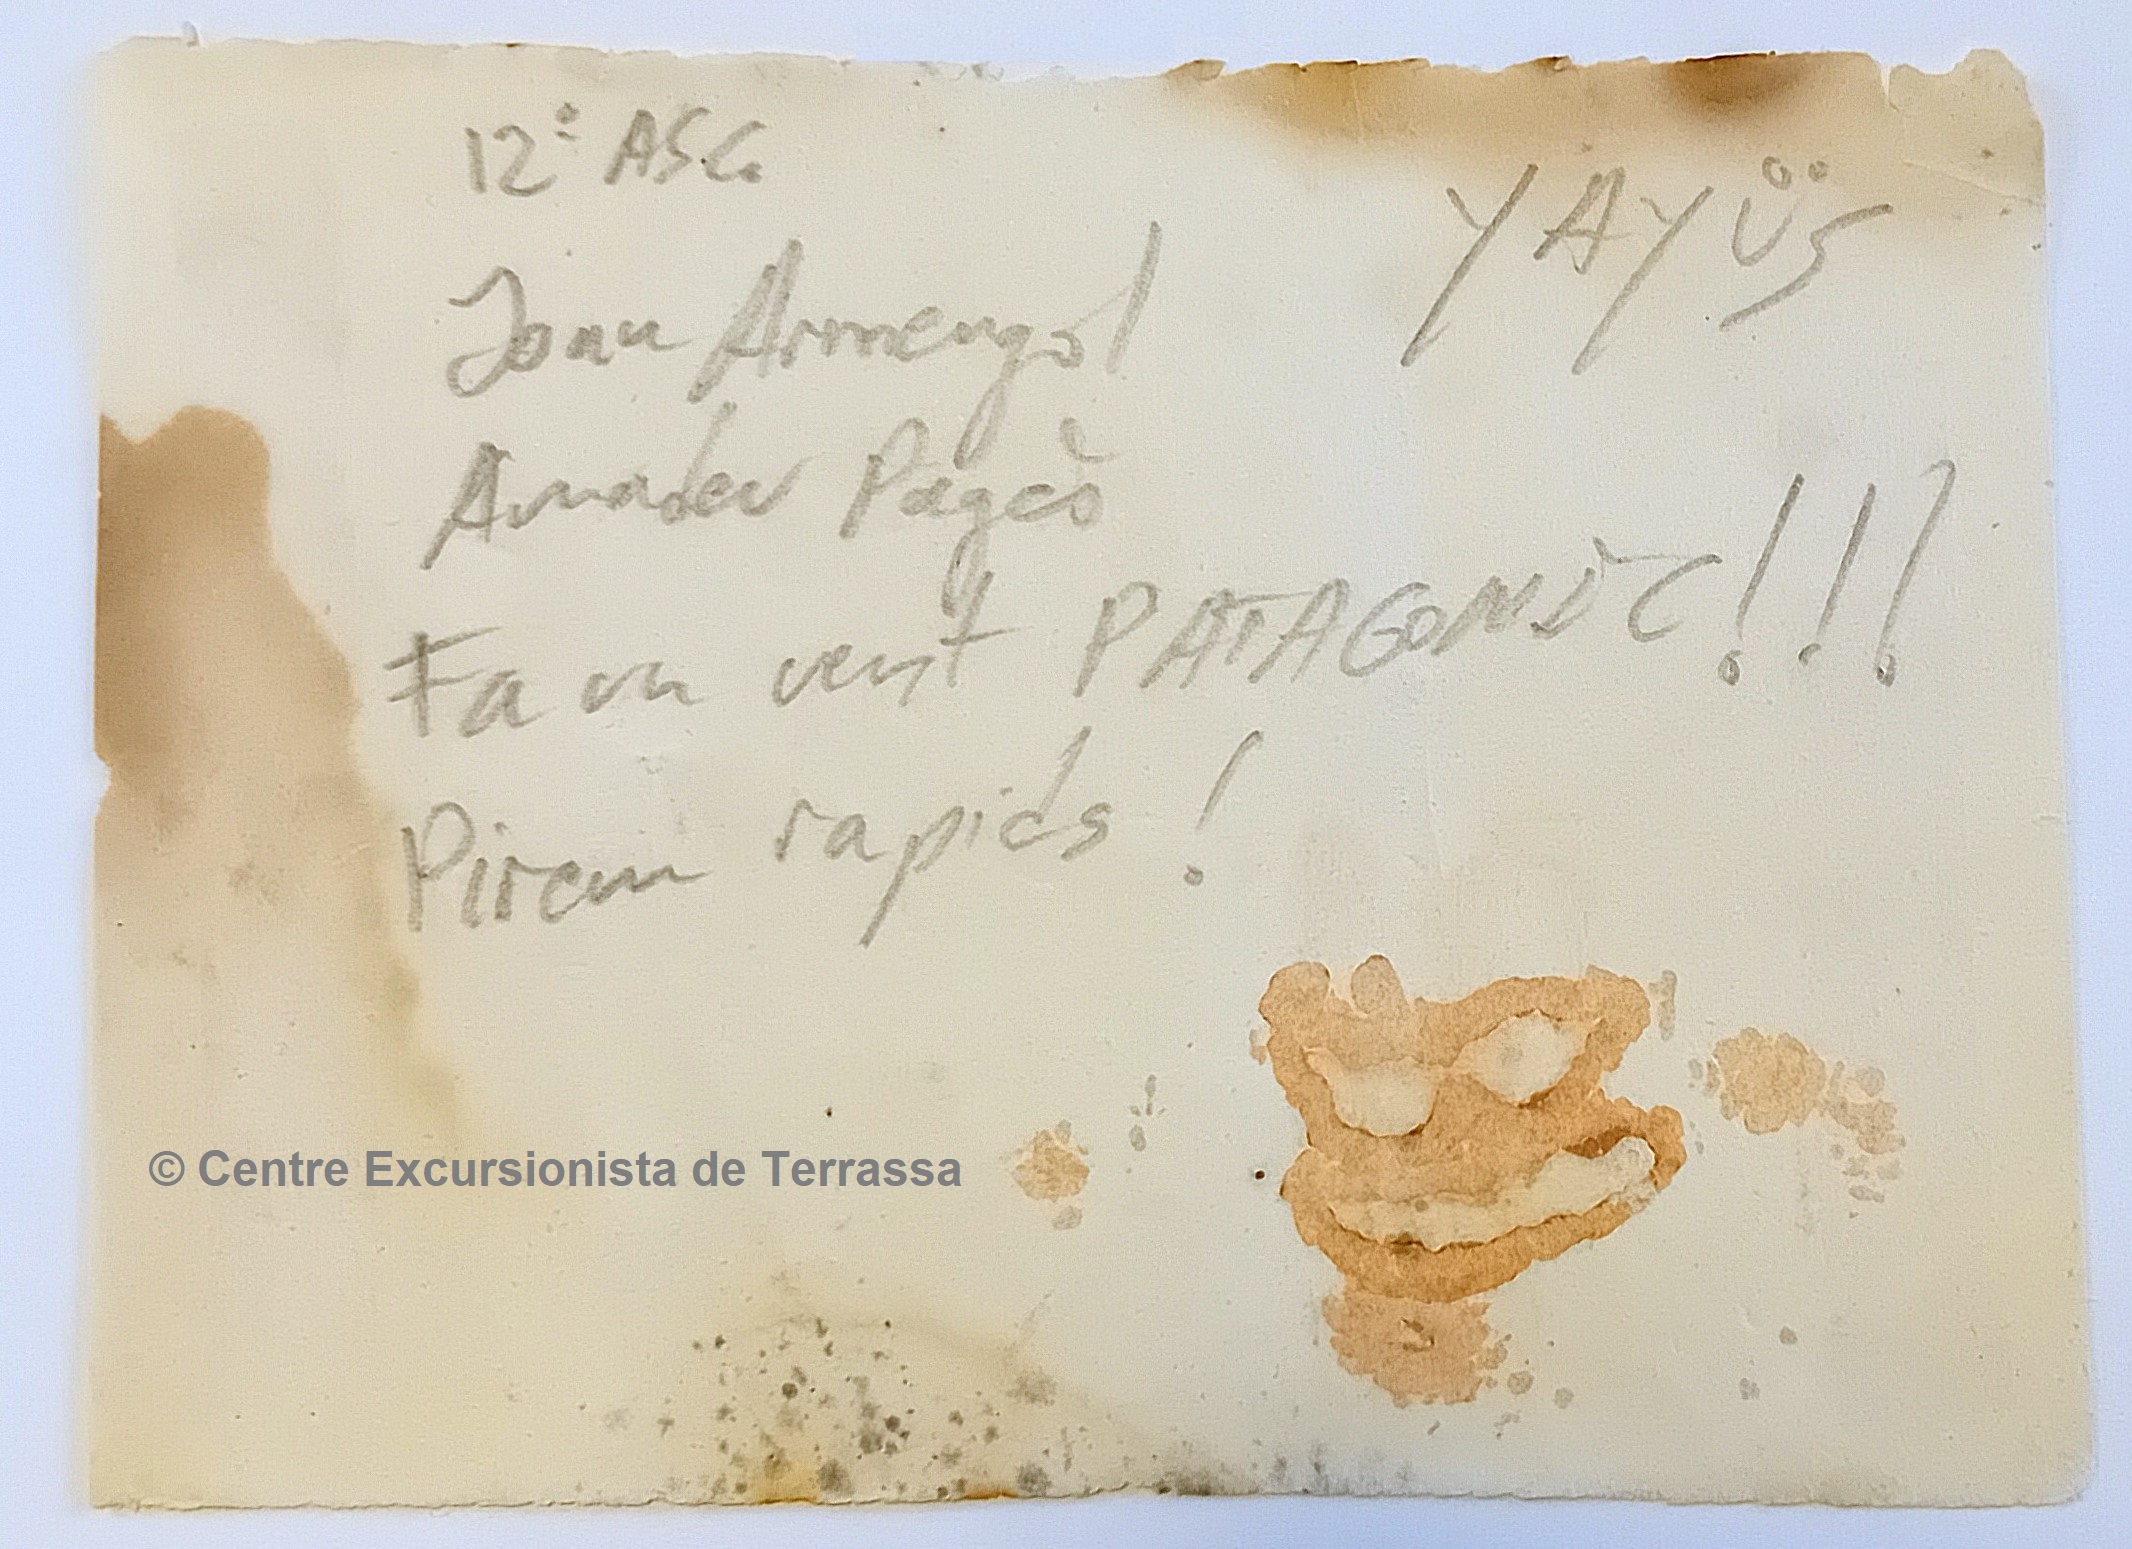 12ª ASC.
YAYÜS
Joan Armengol
Amadeu Pagès
Fa un vent PATAGONIC!!!
Pirem rapids!
© Centre Excursionista de Terrassa